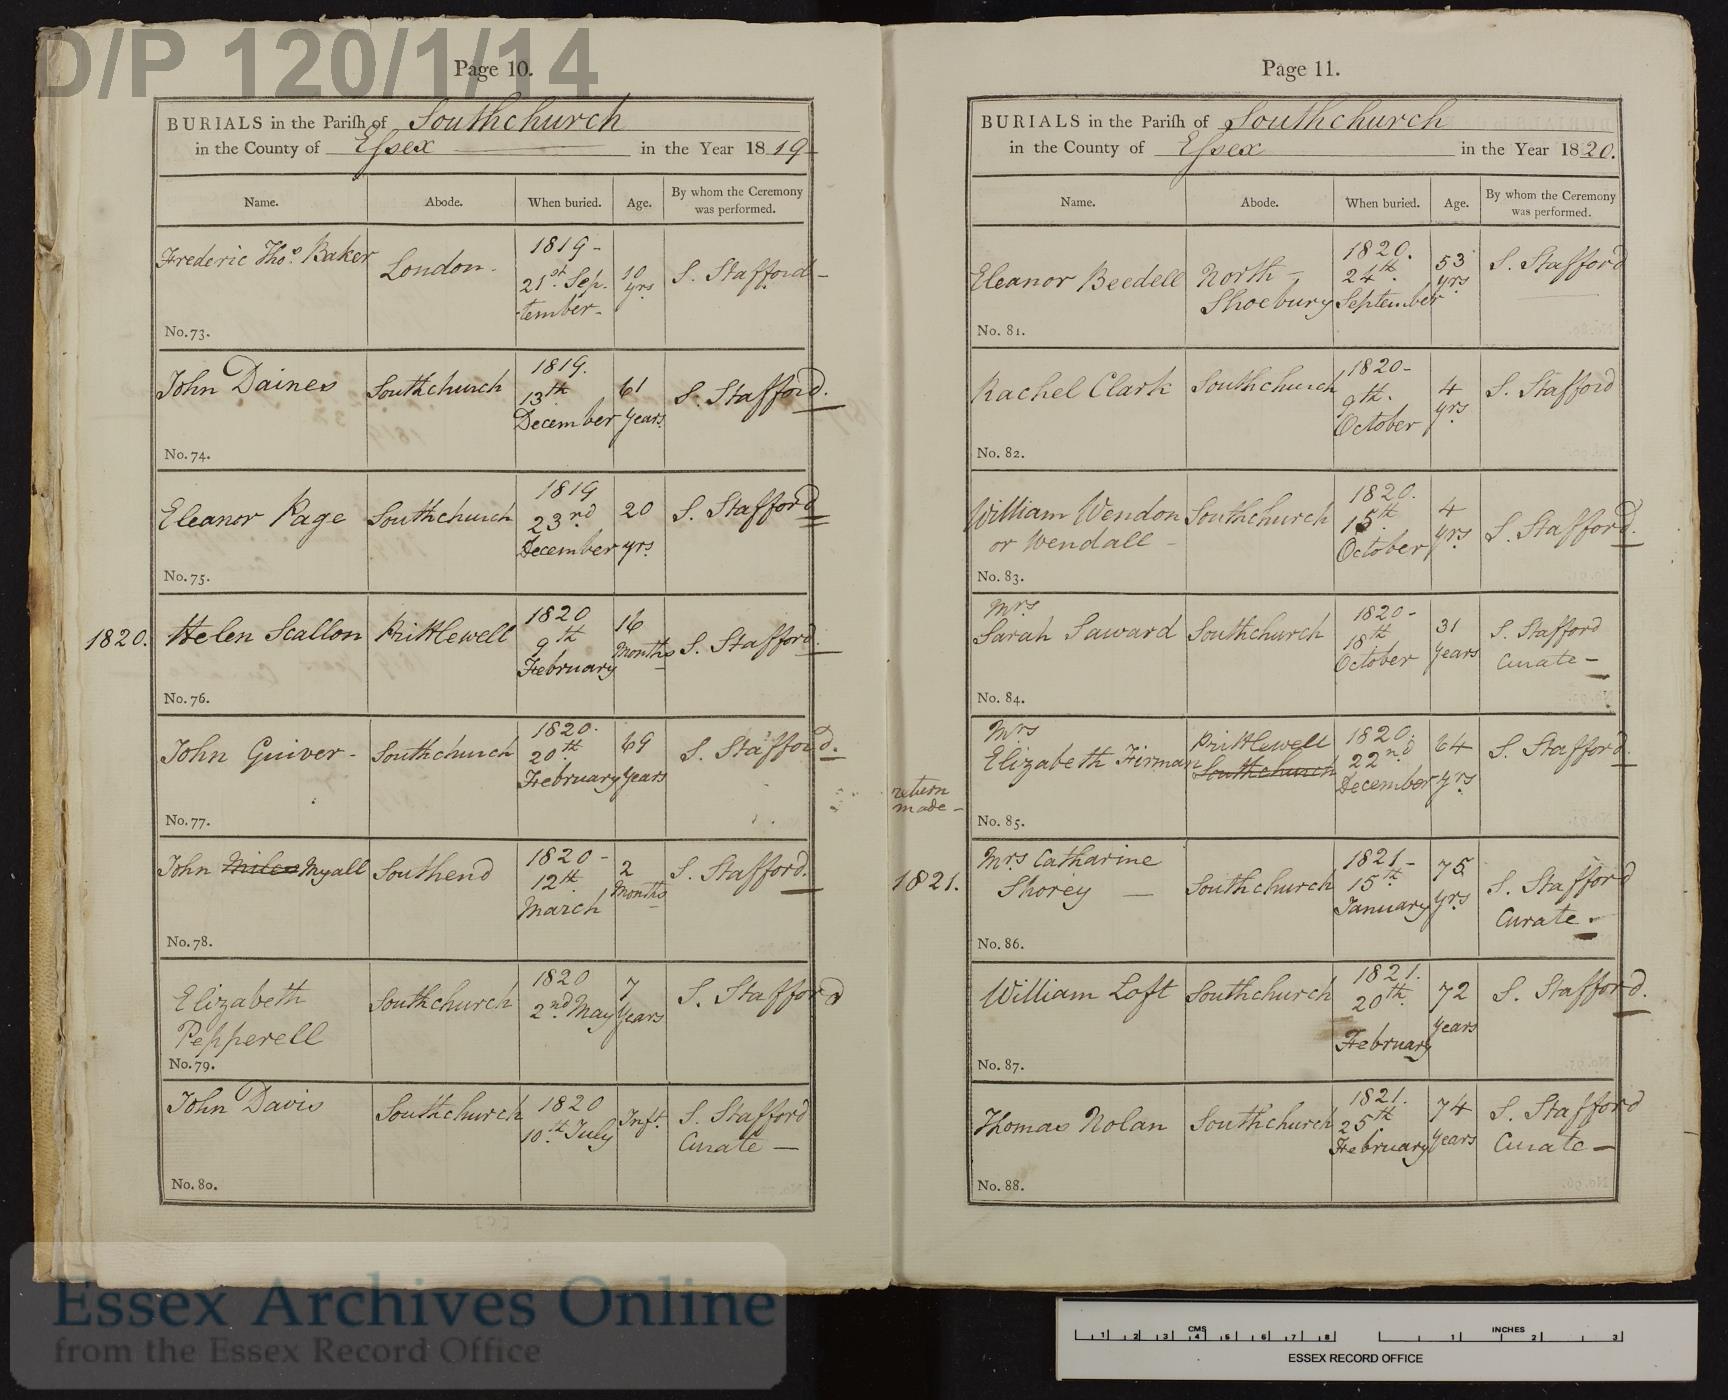 D/P 120/1/14
Page 10.
BURIALS in the Parish of Southchurch
in the County of Essex in the Year 1819
Name. Abode. When buried. Age. By whom the Ceremony was performed.
Frederic Thos. Baker London. 1819 - 21st. Sep. tember - 10 yrs S. Stafford -
No. 73.
John Daines Southchurch 1819. 13th December 61 Years. S. Stafford.
No. 74.
Eleanor Page Southchurch 1819 23rd December 20 yrs. S. Stafford
No. 75.
1820. Helen Scallon Prittlewell 1820 9th February 16 Months S. Stafford.
No. 76.
John Guiver - Southchurch 1820. 20th February 69 Years S. Stafford.
No. 77.
John Miles Myall Southend 1820 - 12th March 2 Months S. Stafford.
No. 78.
Elizabeth Pepperell Southchurch 1820 2nd May 7 Years S. Stafford
No. 79.
John Davis Southchurch 1820 10th July Inft. S. Stafford Curate -
No. 80.
Page 11.
BURIALS in the Parish of Southchurch
in the County of Essex in the Year 1820.
Name. Abode. When buried. Age. By whom the Ceremony was performed.
Eleanor Beedell North - Shoebury 1820. 24th September 53 yrs S. Stafford
No. 81.
Rachel Clark Southchurch 1820 - 9th. October 4 yrs S. Stafford
No. 82.
William Wendon or Wendall - Southchurch 1820. 15th October 4 yrs S. Stafford.
No. 83.
Mrs Sarah Saward Southchurch 1820 - 18th October 31 Years S. Stafford Curate -
No. 84.
Mrs Elizabeth Firman Prittlewell Southchurch 1820. 22nd December 64 yrs S. Stafford.
No. 85.
return made -
1821. Mrs Catharine Shorey - Southchurch 1821 - 15th January 75 yrs S. Stafford Curate -
No. 86.
William Loft Southchurch 1821. 20th. February 72 Years S. Stafford.
No. 87.
Thomas Nolan Southchurch 1821. 25th February 74 Years S. Stafford Curate -
No. 88.
Essex Archives Online
from the Essex Record Office
CMS
1 2 3 4 5 6 7 8
INCHES
1 2 3
ESSEX RECORD OFFICE